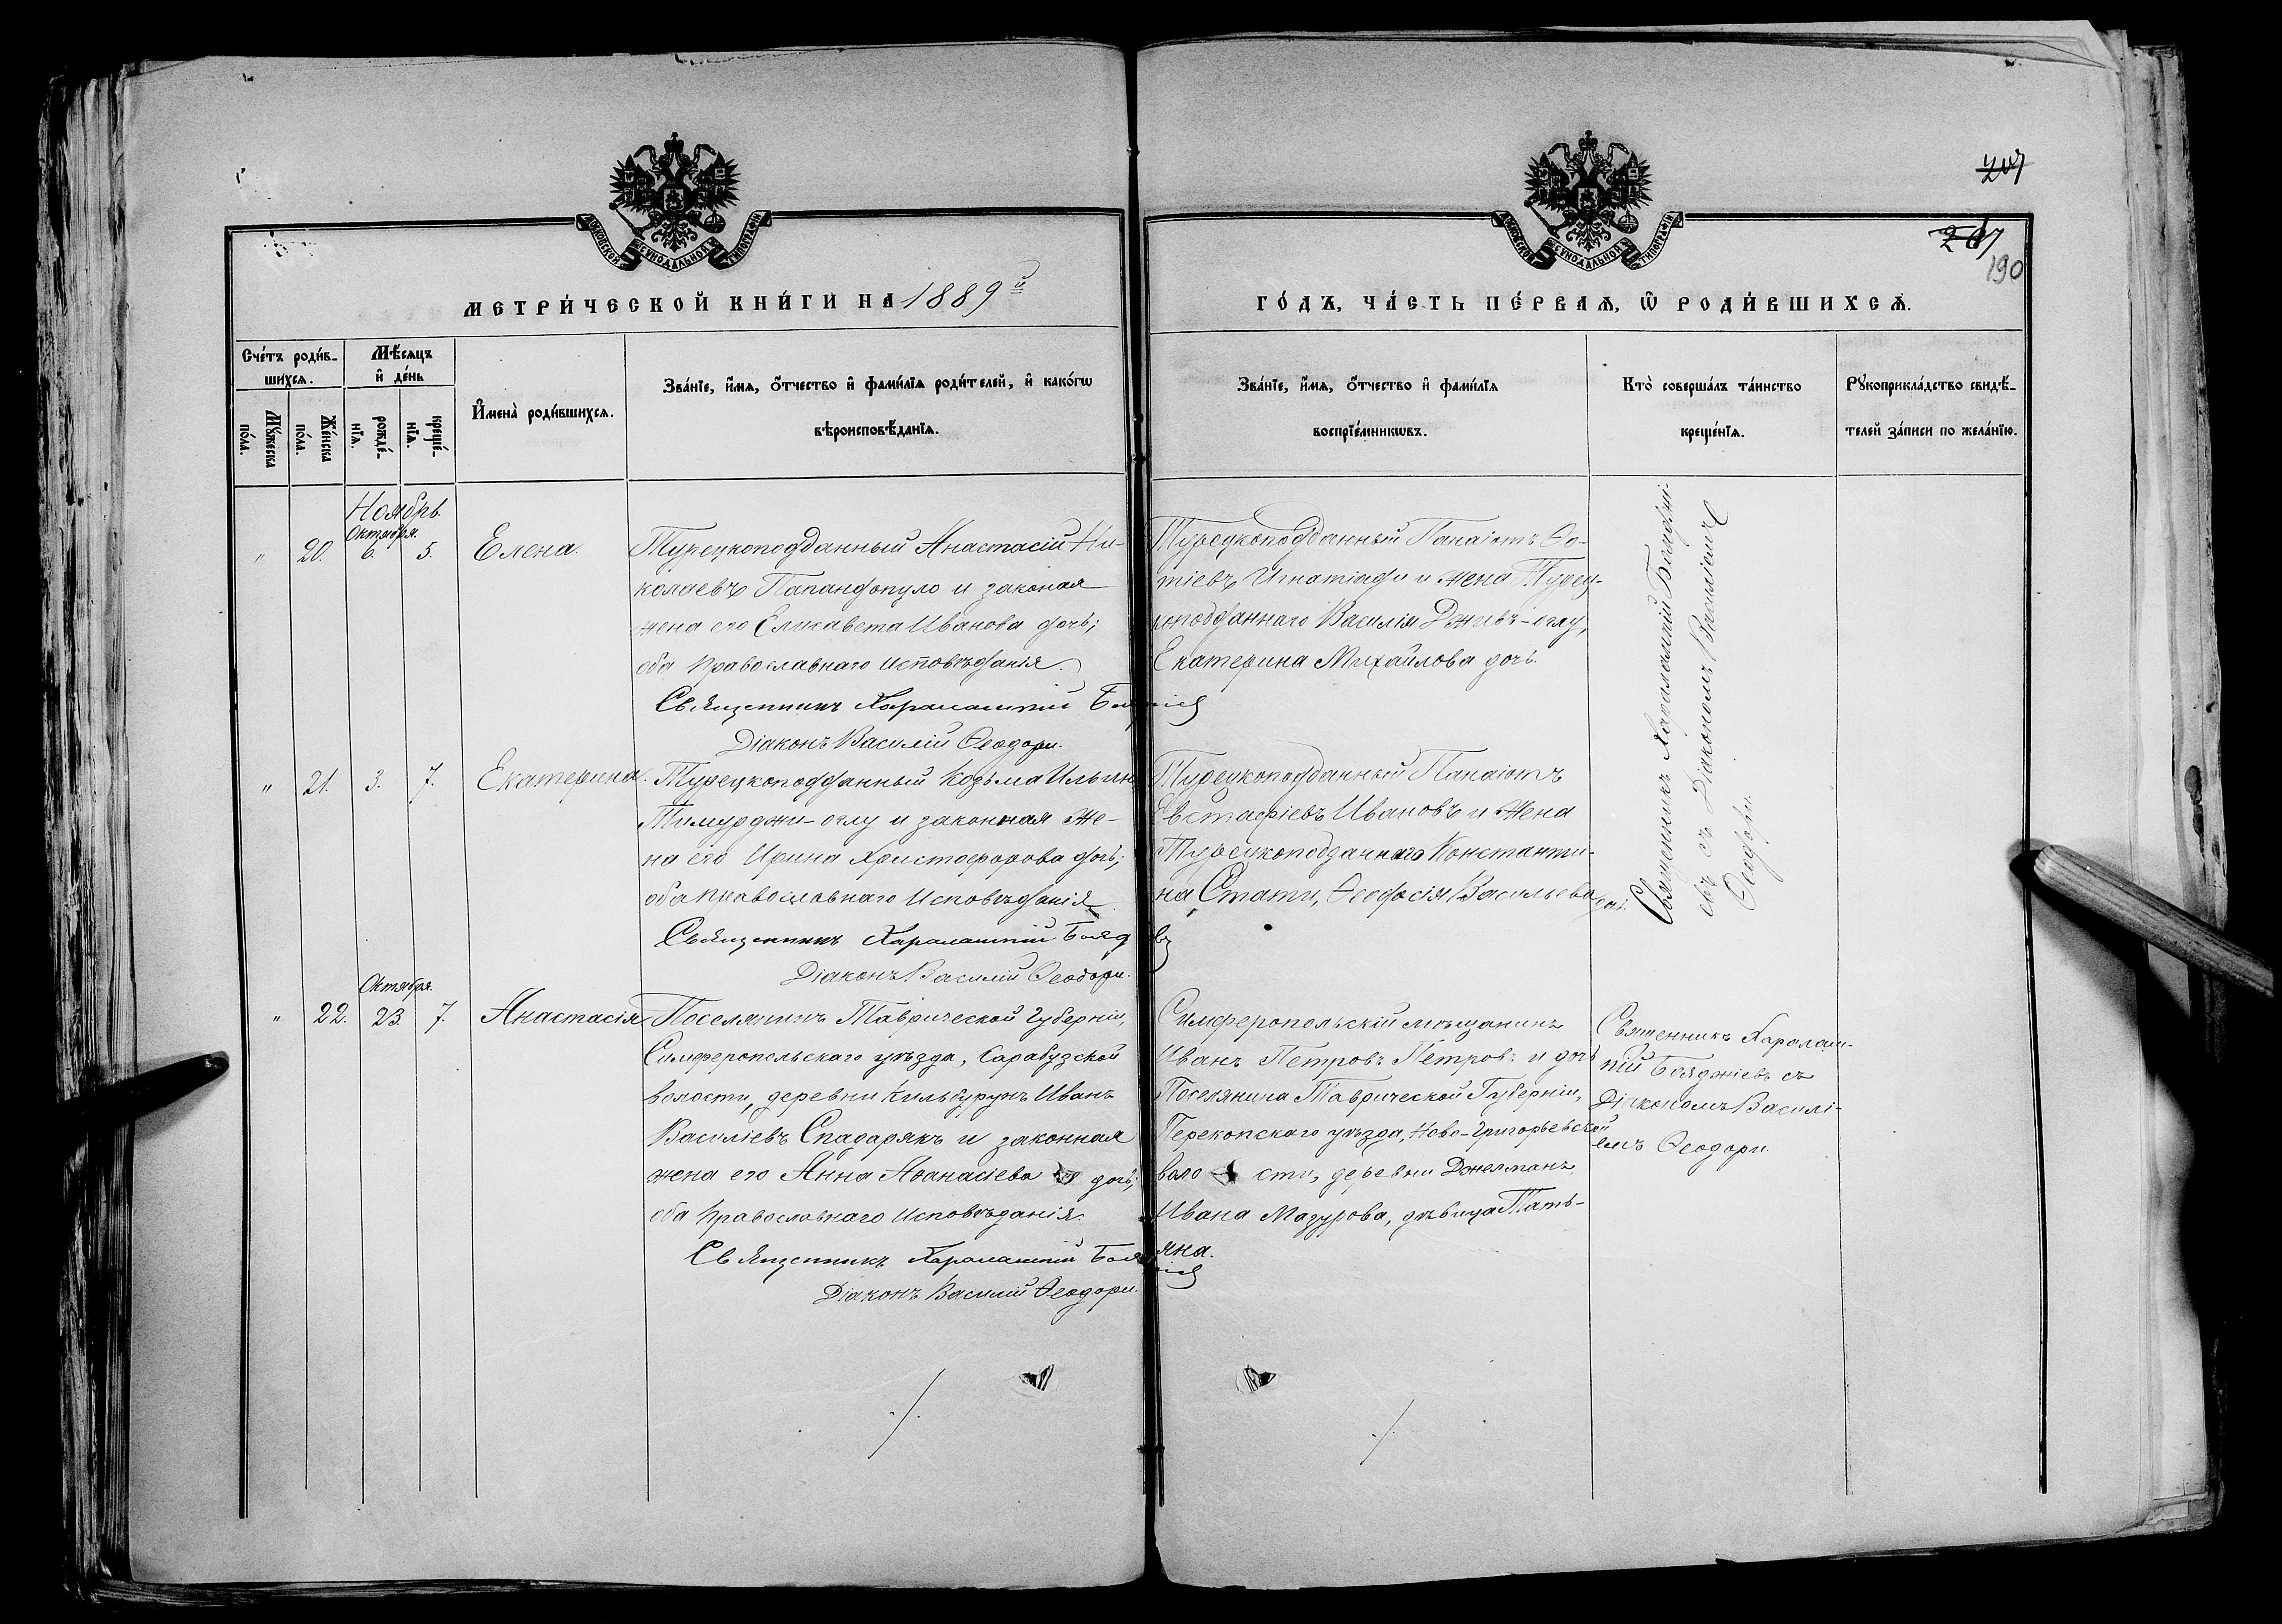 207
207
190
МОСКОВСКОЙ СѴНОДАЛЬНОЙ ТИПОГРАФІИ
МОСКОВСКОЙ СѴНОДАЛЬНОЙ ТИПОГРАФІИ
МЕТРИ́ЧЕСКОЙ КНИ́ГИ НА 1889й
ГО́ДЪ, ЧА́СТЬ ПЕ́РВАѦ, Ѡ РОДИ́ВШИХСѦ.
Сче́тъ роди́в-
шихсѧ.
Мѣ́сѧцъ
и҆ де́нь
Мꙋ́жеска
по́ла.
Же́нска
по́ла.
рожде́-
нїѧ.
креще́-
нїѧ.
И҆мена̀ роди́вшихсѧ.
Зва́нїе, и҆́мѧ, о҆́тчество и҆ фами́лїѧ роди́телей, и҆ како́гѡ
вѣроисповѣ́данїѧ.
Зва́нїе, и҆́мѧ, о҆́тчество и҆ фами́лїѧ
воспрїе́мникѡвъ.
Кто̀ соверша́лъ та́инство
креще́нїѧ.
Рꙋкоприкла́дство свидѣ́-
телей за́писи по жела́нїю.
Ноябрь
Октября.
" 20. 6. 5. Елена.
Турецкоподданный Анастасій Ни-
колаевъ Папандопуло и законая
жена его Елисавета Иванова дочь;
оба Православнаго Исповѣданія.
Священникъ Харалампій
Діаконъ Василій Ѳеодори.
Турецкоподданный Панаіотъ Ѳо-
тіевъ Игнатіади и жена Турец-
коподданнаго Василія Дживъ-оглу,
Екатерина Михайлова дочь.
Священникъ Харалампій Бояджі-
евъ съ Діакономъ Василіемъ
Ѳеодори.
" 21. 3. 7. Екатерина.
Турецкоподданный Козьма Ильинъ
Тимурджи-оглу и законная же-
на его Ирина Христофорова дочь;
оба Православнаго Исповѣданія.
Священникъ Харалампій Бояджіевъ
Діаконъ Василій Ѳеодори.
Турецкоподданный Панаіотъ
Евстафіевъ Ивановъ и жена
Турецкоподданнаго Константи-
на Стати, Ѳеодосія Васильева дочь.
Октября.
" 22. 23. 7. Анастасія
Поселянинъ Таврической Губерніи,
Симферопольскаго уѣзда, Сарабузской
волости, деревни Кильбурунъ Иванъ
Василіевъ Спадарякъ и законная
жена его Анна Аѳанасіева дочь;
оба Православнаго Исповѣданія.
Священникъ Харалампій
Діаконъ Василій Ѳеодори.
Симферопольскій мѣщанинъ
Иванъ Петровъ Петровъ и дочь
Поселянина Таврической Губерніи,
Перекопскаго уѣзда, Ново-Григорьевской
воло сти, деревни Джелманъ
Ивана Мазурова, дѣвица Тать-
яна.
Священникъ Харалам-
пій Бояджіевъ съ
Діакономъ Василі-
емъ Ѳеодори.